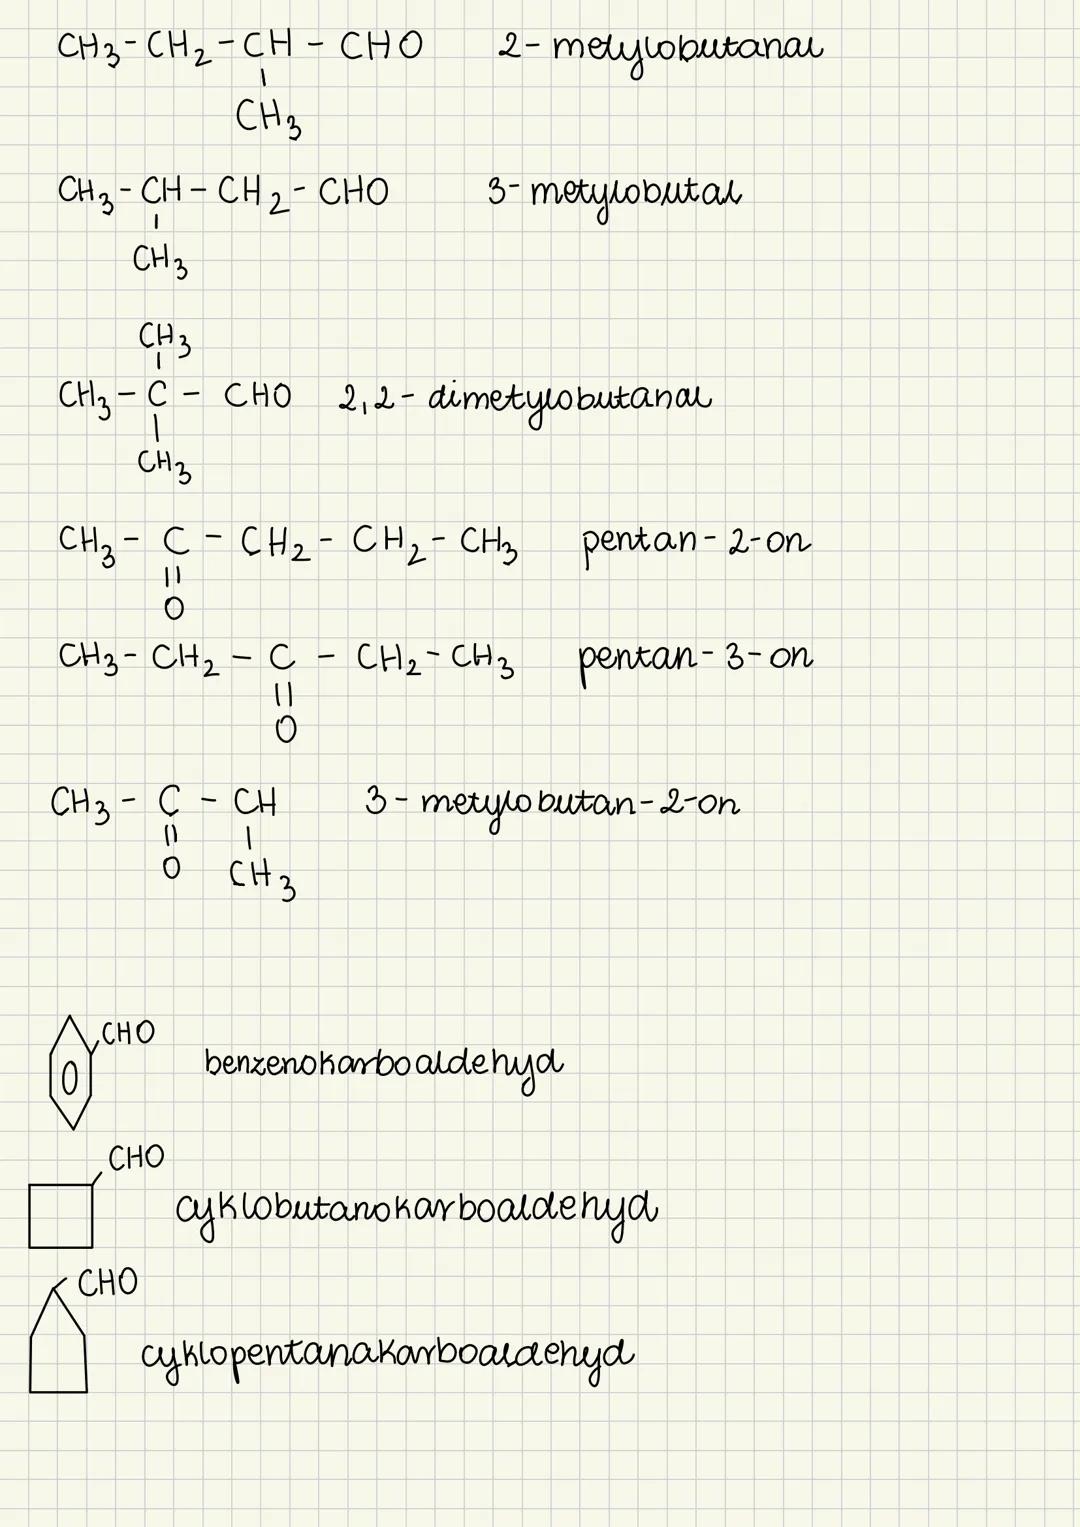 CH3-CH2-CH-CHO 2-metylobutanal
CH3
CH3-CH-CH2-CHO 3-metylobutal
CH3
CH3
CH3-C-CHO 2,2-dimetylobutanal
CH3
CH3-C-CH2-CH2-CH3 pentan-2-on
O
CH3-CH2-C-CH2-CH3 pentan-3-on
O
CH3-C-CH 3-metylobutan-2-on
O CH3
CHO
benzenokarboaldehyd
CHO
cyklobutanokarboaldehyd
CHO
cyklopentanakarboaldehyd